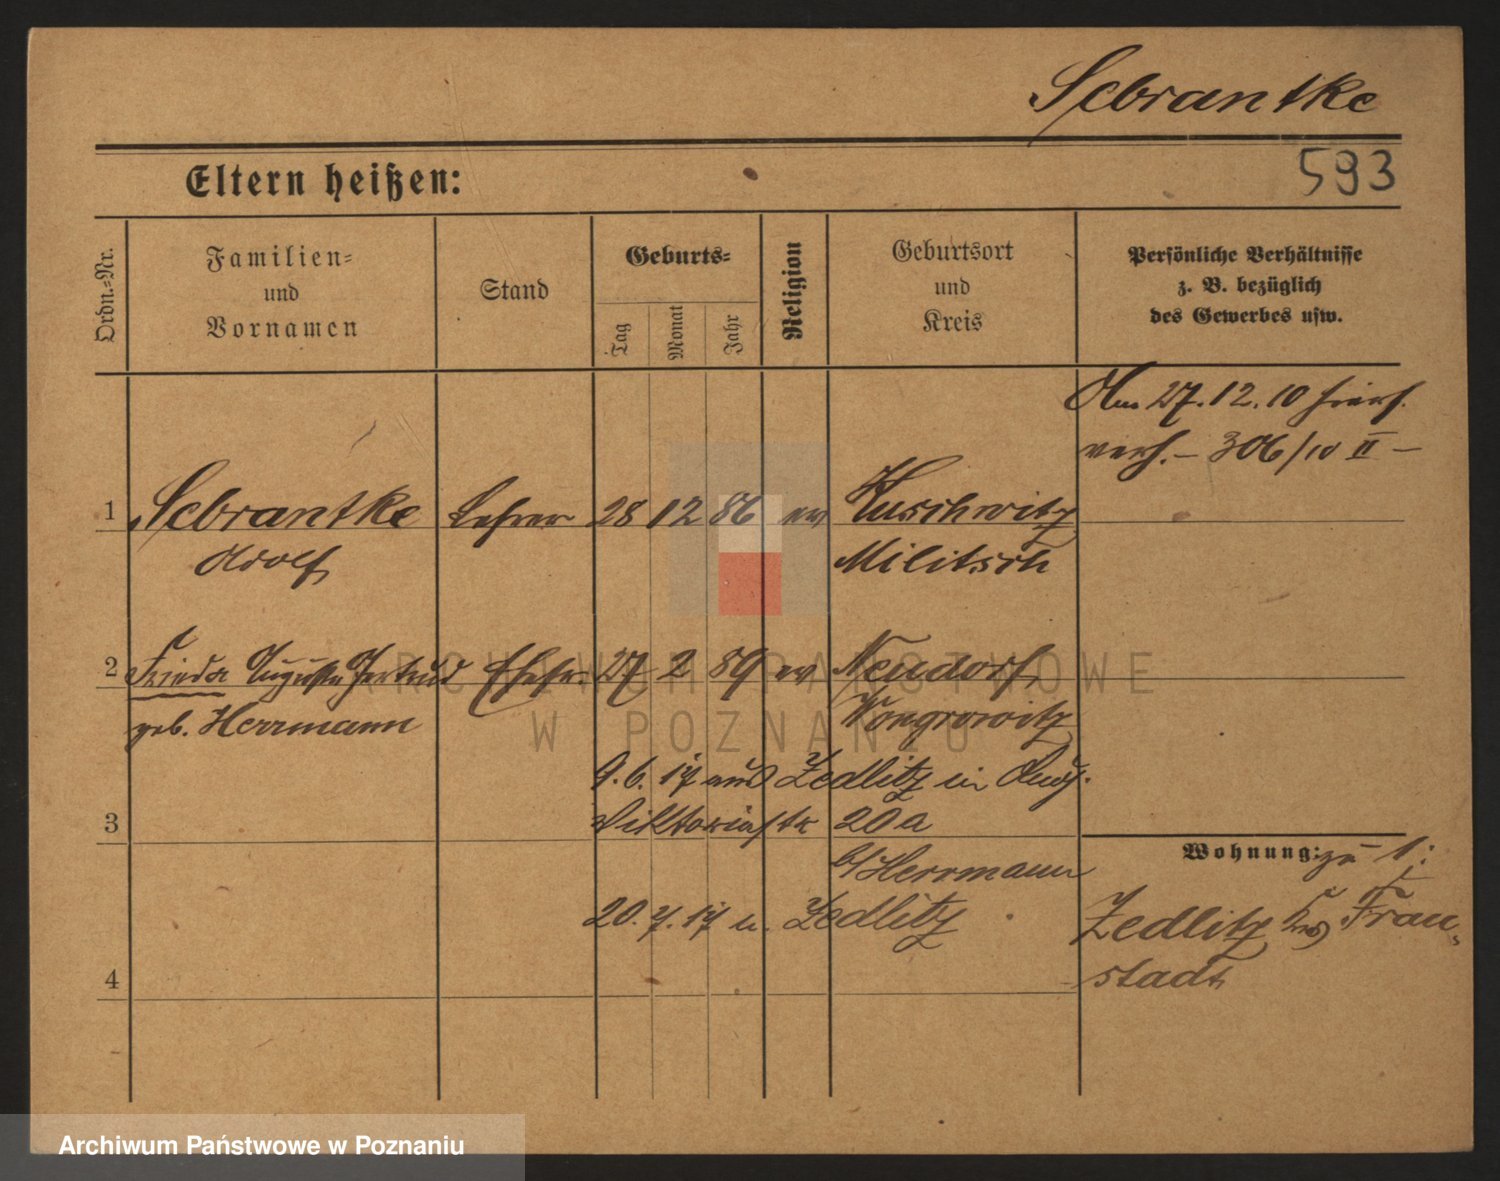 Sebrantke
Eltern heißen:
593
Ordn.-Nr.
Familien-
und
Vornamen
Stand
Geburts-
Tag
Monat
Jahr
Religion
Geburtsort
und
Kreis
Persönliche Verhältnisse
z. B. bezüglich
des Gewerbes usw.
Am 27.12.10 hiers.
verh. – 306/10 II –
1 Sebrantke Lehrer 28 12 86 ev Kuschwitz
Adolf Militsch
2 Frieda Auguste Gertrud Ehefr. 27 2 89 ev Neudorf
geb. Herrmann Wongrowitz
9.6.17 aus Zedlitz in
3 Viktoriastr 20a
b/Herrmann
20.7.17 n. Zedlitz
Wohnung: zu 1:
Zedlitz Krs Frau-
stadt
4
ARCHIWUM PAŃSTWOWE
W POZNANIU
Archiwum Państwowe w Poznaniu